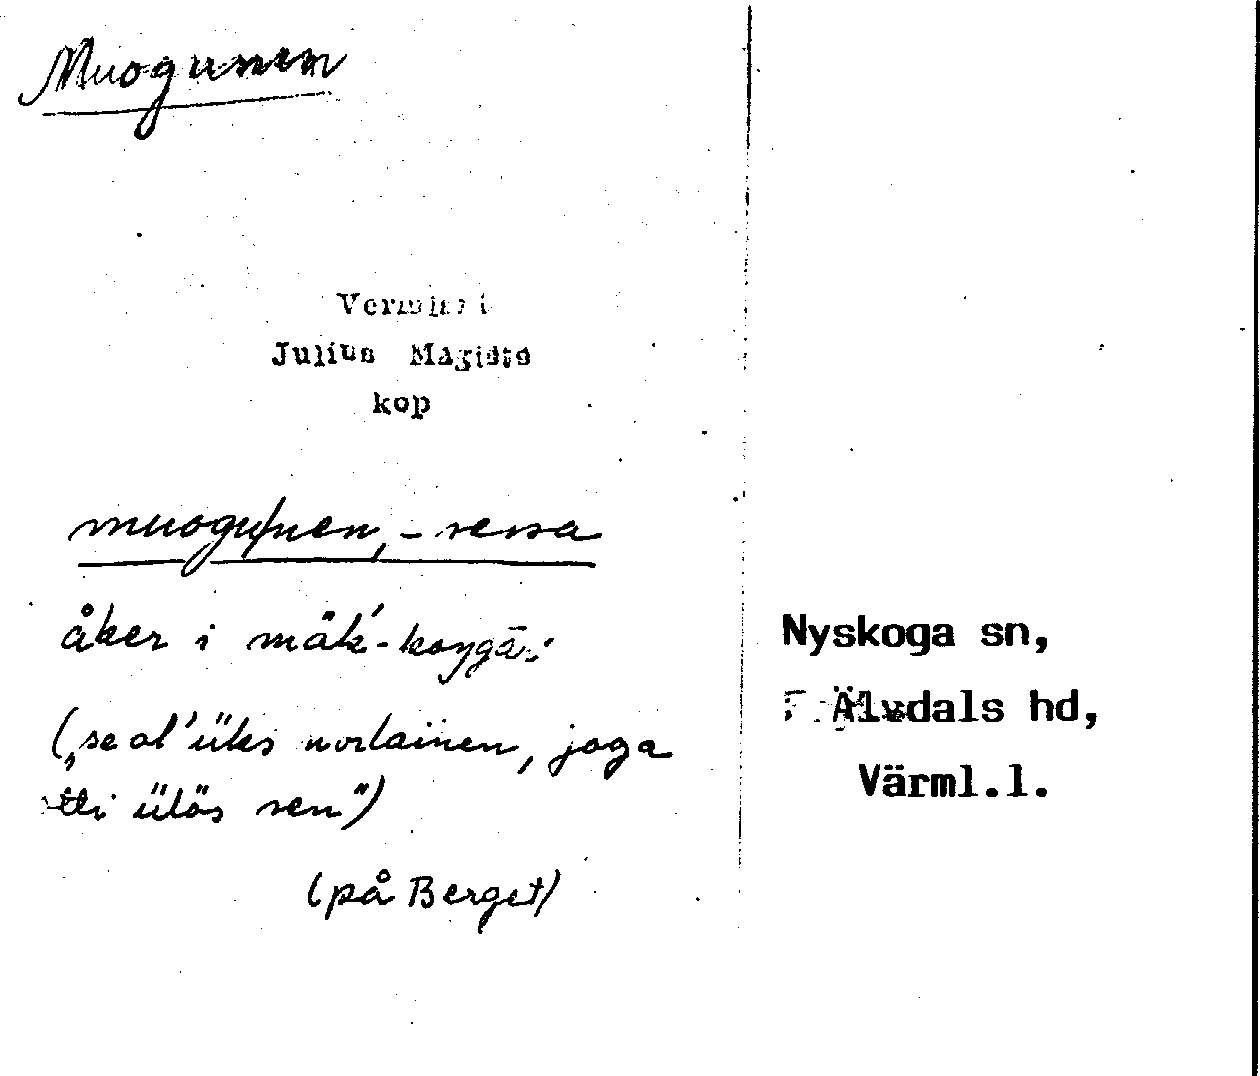 Muogunen
Julius Mägiste
kop
muogu/nen, -sessa
åker i mäk'-
("se ol' üks norlainen, joga
tti ülös sen")
(på Berget)
Nyskoga sn,
Älvdals hd,
Värml.l.